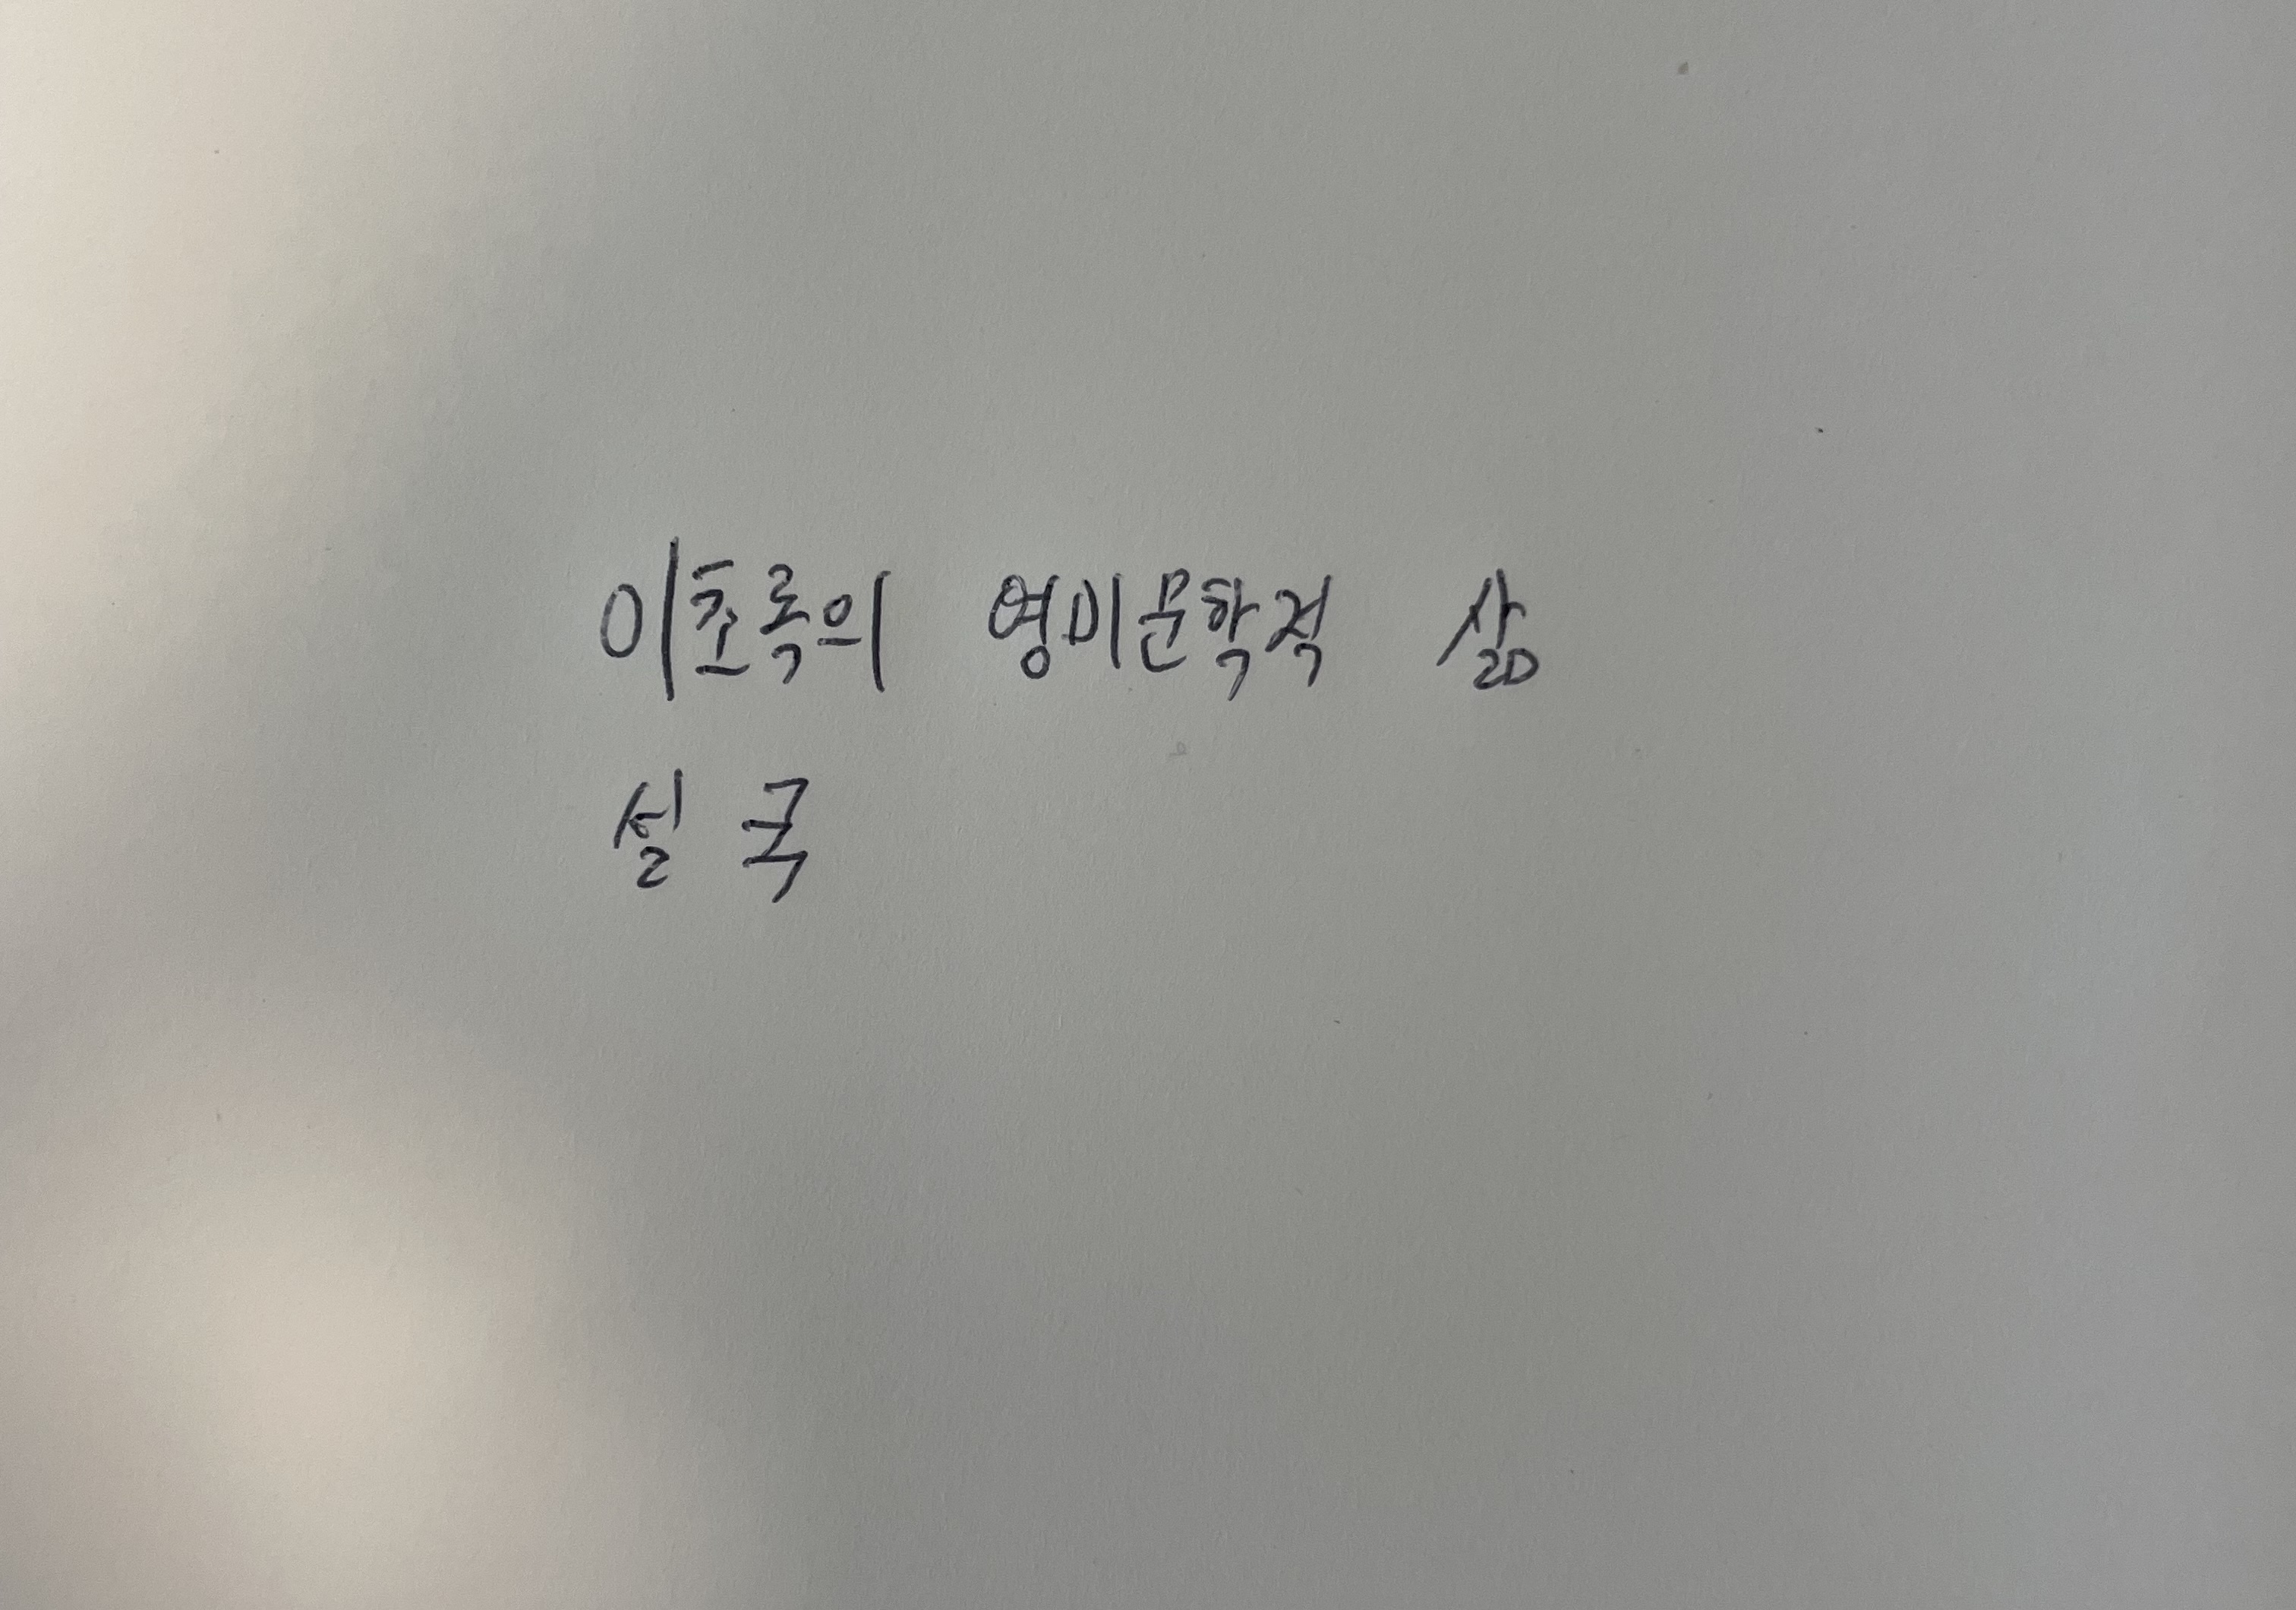 이초록의 영미문학적 삶
설국